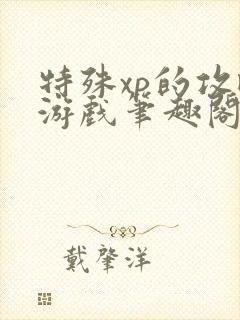 特殊xp的攻
游戏笔趣阁
戴肇洋